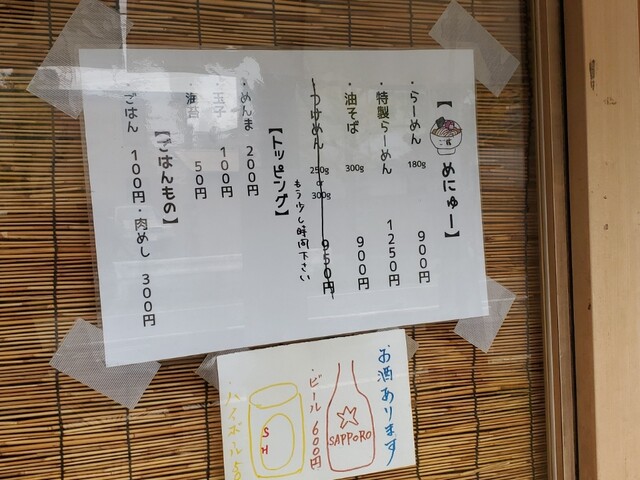 【めにゅー】
・らーめん 180g 900円
・特製らーめん 1250円
・油そば 300g 900円
・つけめん 250g or 300g 950円
もう少し時間下さい
【トッピング】
・めんま 200円
・玉子 100円
・海苔 50円
【ごはんもの】
・ごはん 100円・肉めし 300円
お酒あります
SAPPORO
・ビール 600円
SH
・ハイボール